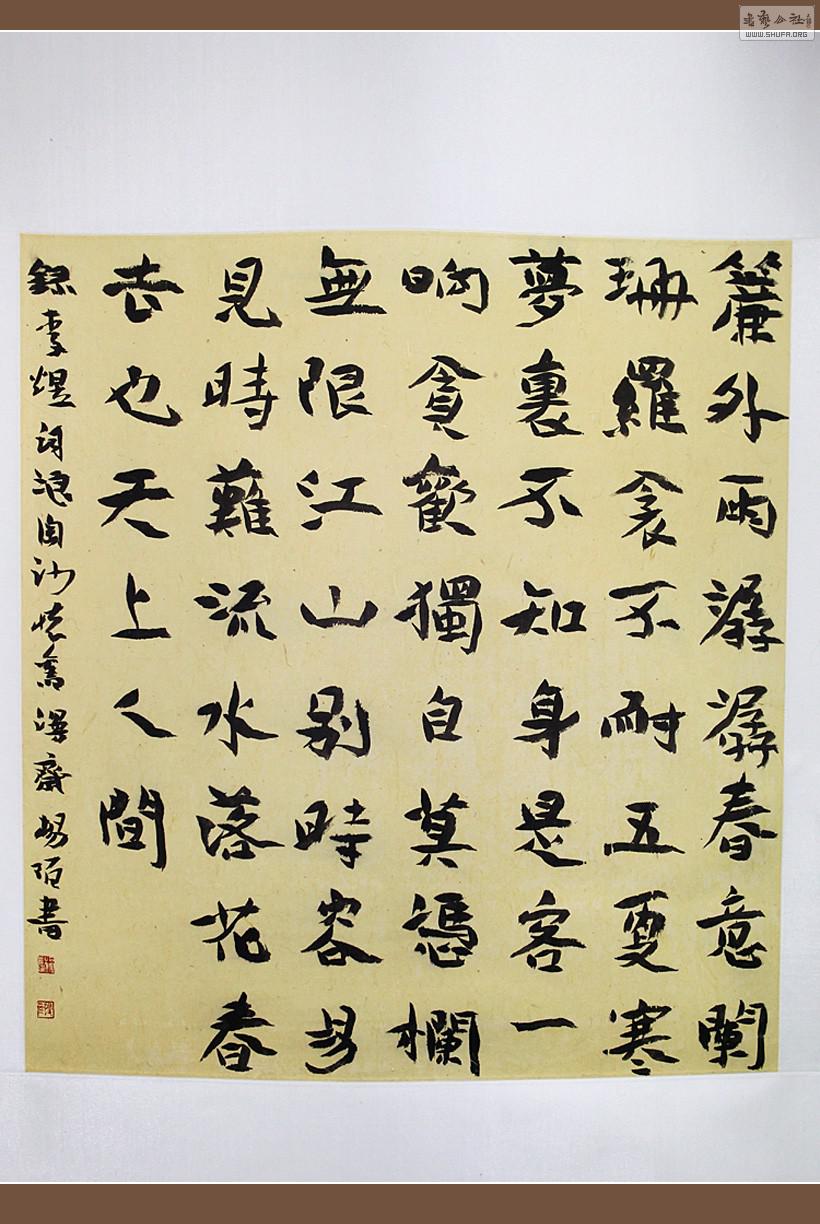 簾外雨潺潺春意闌
珊羅衾不耐五更寒
夢裏不知身是客一
晌貪歡獨自莫憑欄
無限江山別時容易
見時難流水落花春
去也天上人間
錄李煜詞浪淘沙懷舊齋陌書
WWW.SHUFA.ORG